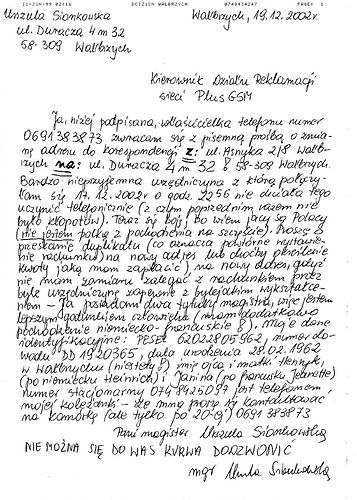 11-JUN-99 02:16 DCIZION WALBRZYCH 0748434247 PAGE: 1
Urszula Sionkowska Wałbrzych, 19.12.2002r.
ul. Duracza 4 m 32
58-309 Wałbrzych
Kierownik Działu Reklamacji
sieci Plus GSM
Ja, niżej podpisana, właścicielka telefonu numer
0691383873 zwracam się z pisemną prośbą o zmia-
nę adresu do korespondencji z: ul. Asnyka 2/8 Wałb-
rzych na: ul. Duracza 4 m 32 58-309 Wałbrzych.
Bardzo nieprzyjemna urzędniczyna z którą połączy-
łam się 17.12.2002r o godz. 22⁵⁶ nie chciała tego
uczynić telefonicznie (z czym poprzednim razem nie
było kłopotów). Teraz się boi, bo wiem jacy są Polacy
(nie jestem polką z pochodzenia na szczęście). Proszę o
przesłanie duplikatu (co oznacza powtórne wystawie-
nie rachunku) na nowy adres lub choćby określenie
kwoty jaką mam zapłacić) na nowy adres, gdyż
nie mam zamiaru zalegać z rachunkiem przez
głupie urzędniczyny zapewne z bylejakim wykształce-
niem - Ja posiadam dwa tytuły magistra, więc jestem
lepszym gatunkiem człowieka (mam dodatkowo
pochodzenie niemiecko-francuskie), moje dane
identyfikacyjne: PESEL 62022805962, numer do-
wodu DD 1920365, data urodzenia 28.02.1962
w Wałbrzychu (niestety), imię ojca i matki Henryk,
(po niemiecku Heinrich) i Janina (po francusku Jeannette)
numer stacjonarny 0748425093 jest telefonem
mojej koleżanki - ze mną proszę się kontaktować
na komórkę (ale tylko po 20-ej) 0691383873
Pani magister Urszula Sionkowska
NIE MOŻNA SIĘ DO WAS KURWA DODZWONIĆ
mgr Urszula Sionkowska